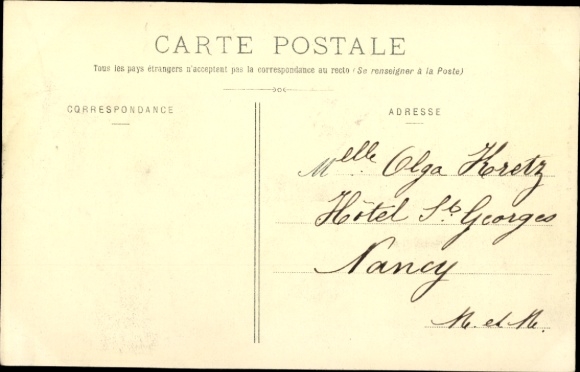 CARTE POSTALE
Tous les pays étrangers n'acceptent pas la correspondance au recto (Se renseigner à la Poste)
CORRESPONDANCE
ADRESSE
Melle Olga Kretz
Hôtel St. Georges
Nancy
M. et M.